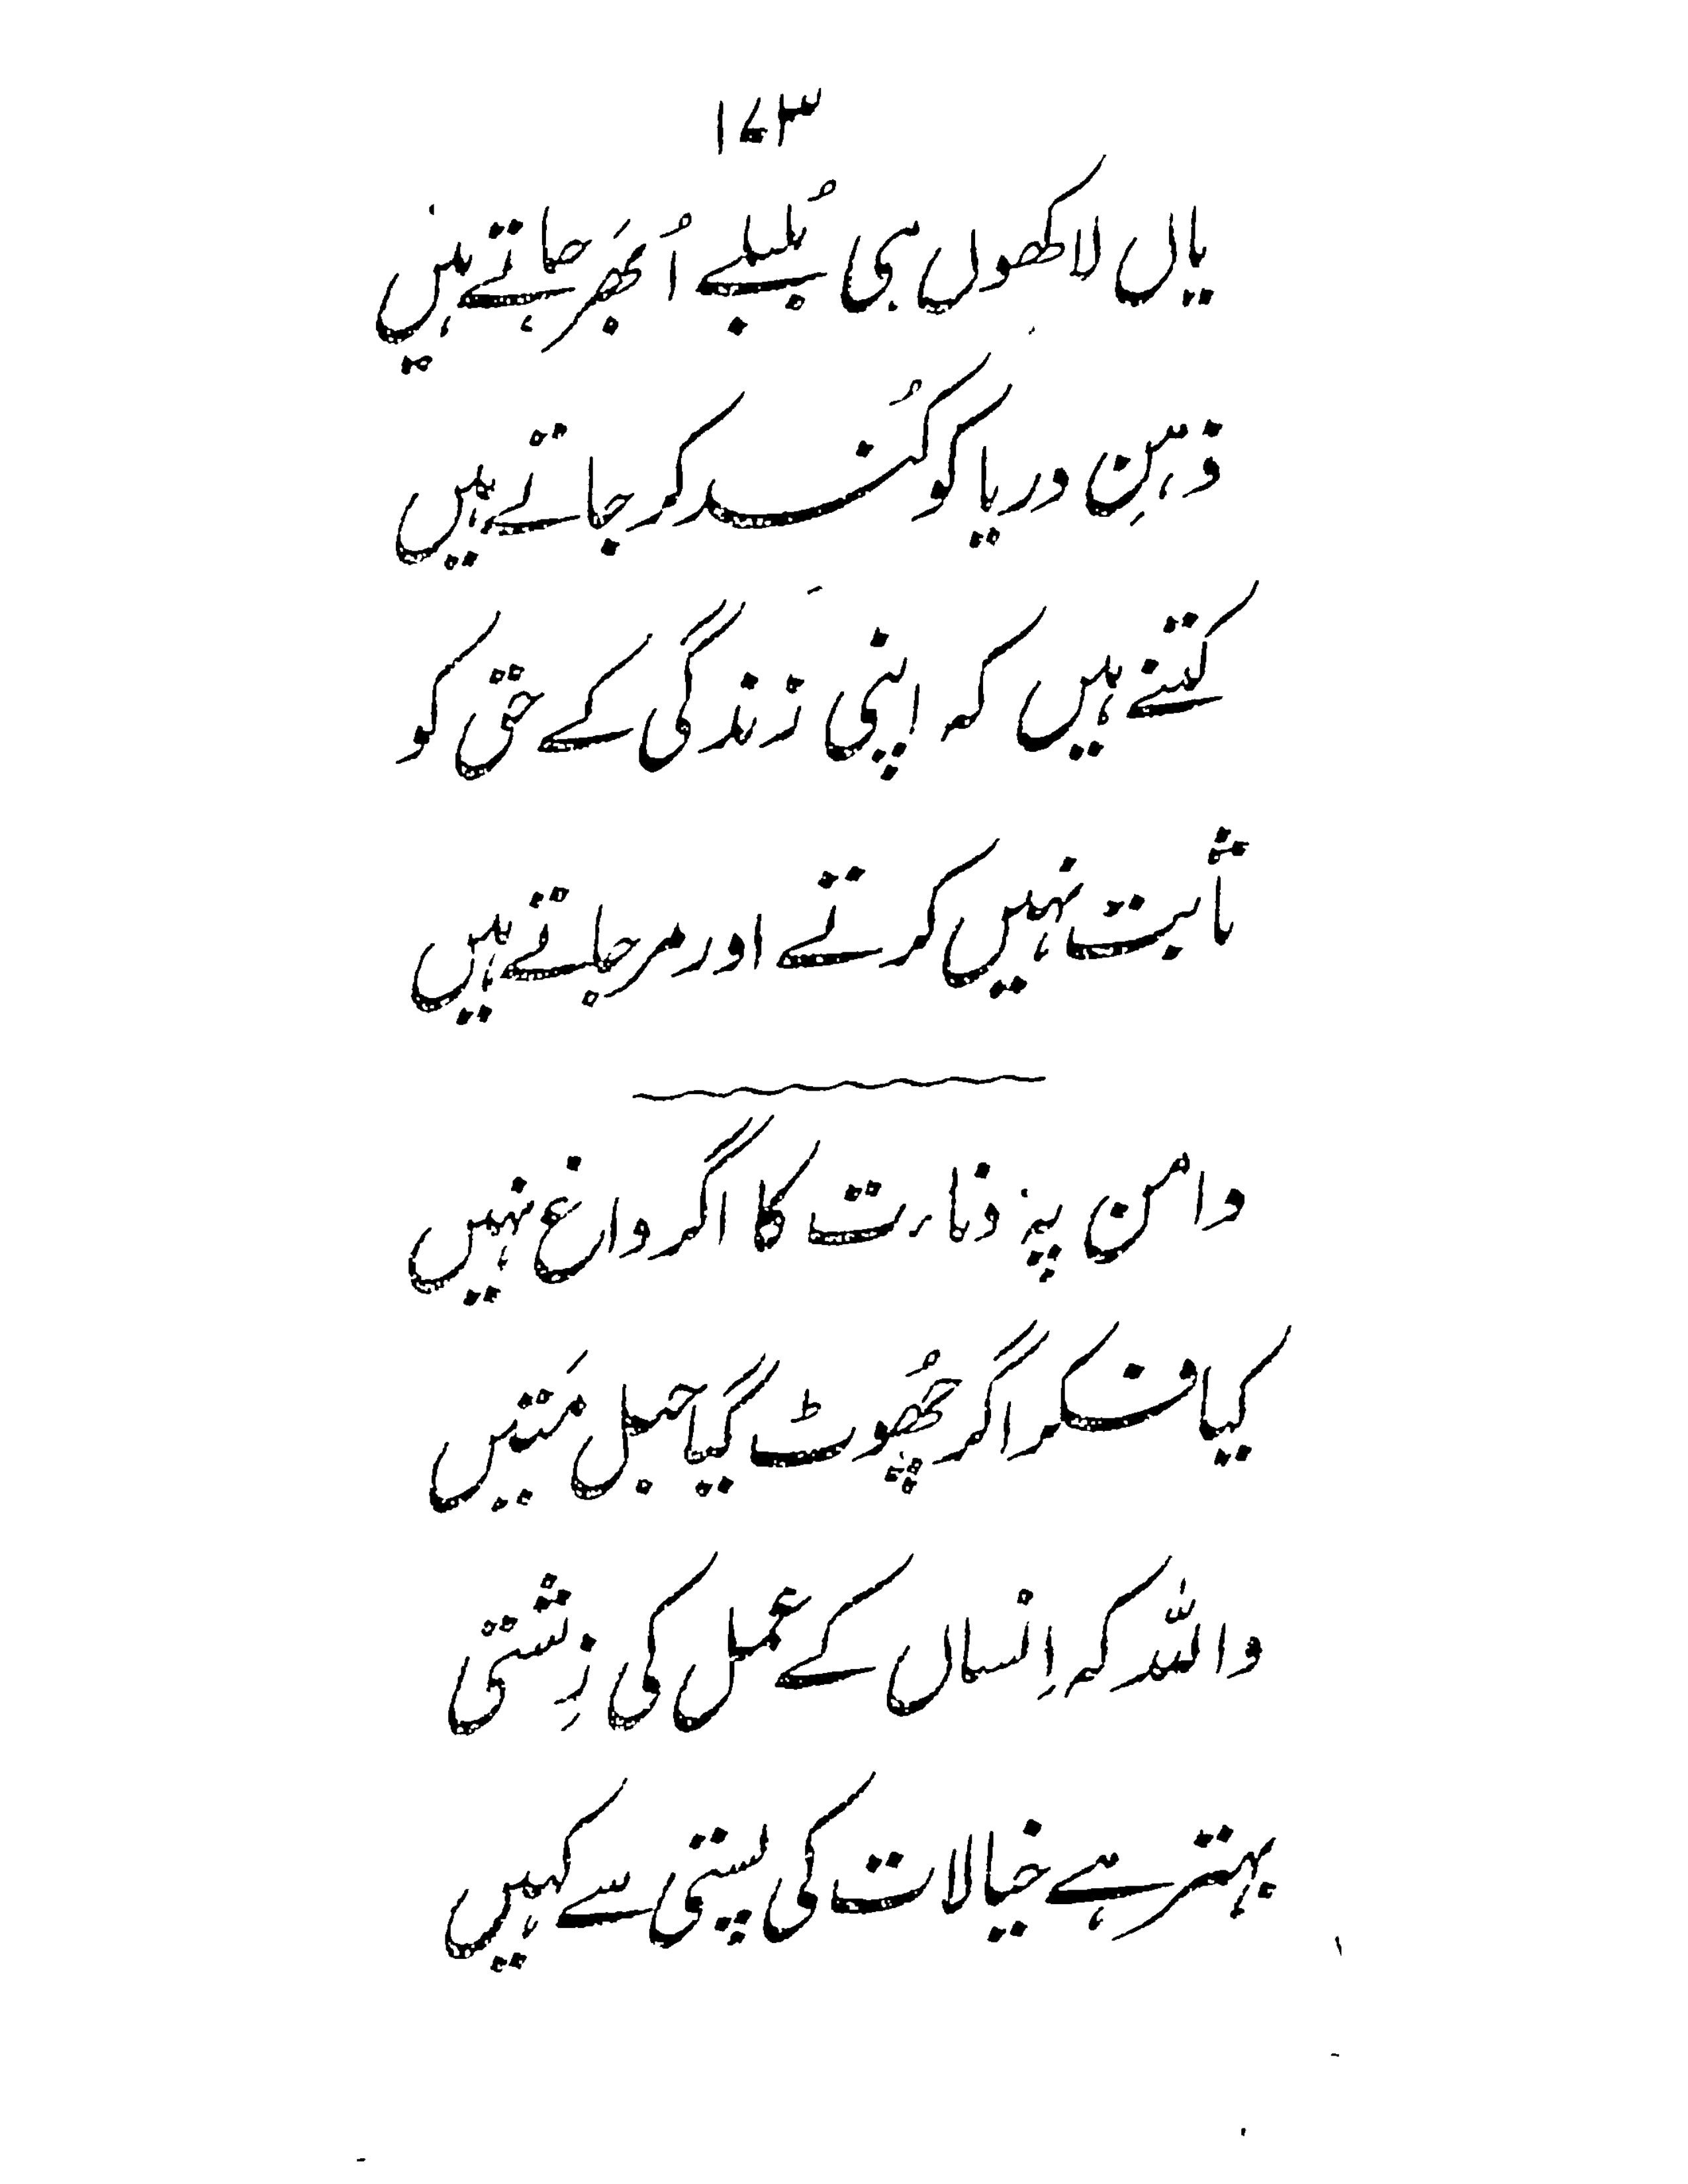 ۱۷۳
یاں لاکھوں ہی بُلبلے اُبھَر جاتے ہیں
ذہنِ دریا کو کُند کر جاتے ہیں
کتنے ہیں کہ اپنی زندگی کے حق کو
ثابت نہیں کرتے اور مر جاتے ہیں
دامن پہ دنارت کا اگر داغ نہیں
کیا فکر اگر چھُوٹ گیا حبل مَتیں
واللہ کہ اِنساں کے عمل کی زِشتی
بہتر ہے خیالات کی پستی سے کہیں